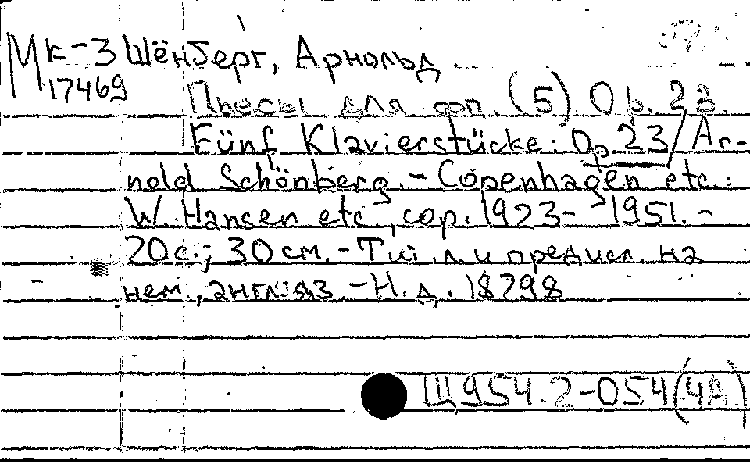 Мк-3 Шёнберг, Арнольд
17469
Пьесы для фп. (5) Ор. 23
Fünf Klavierstücke: Op 23 / Ar-
nold Schönberg. - Copenhagen etc.:
W. Hansen etc, cop. 1923- 1951. -
20 с.; 30 см. - Тит. л. и предисл. на
нем., англ. яз. - Н. д. 18298
Щ954.2-054(4А)